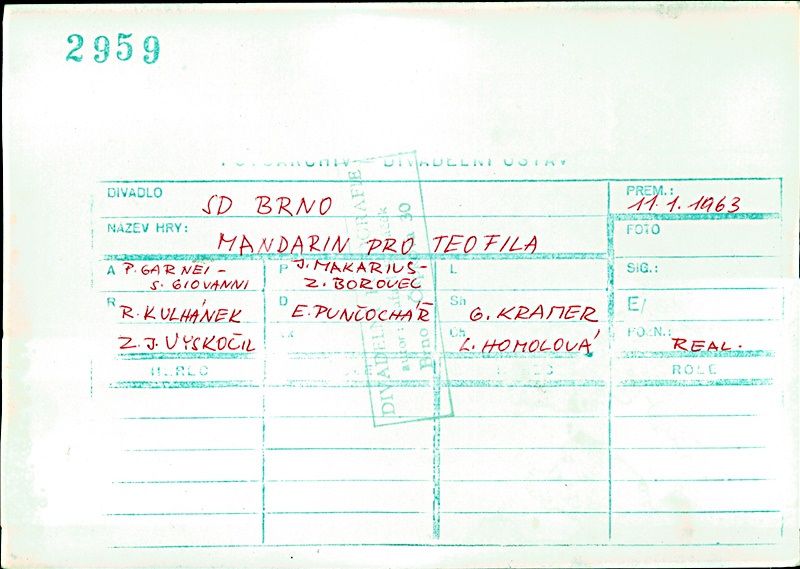 2959
FOTOARCHIV - DIVADELNÍ ÚSTAV
DIVADLO SD BRNO PREM.: 11.1.1963
NÁZEV HRY: MANDARIN PRO TEOFILA FOTO
A P. GARNEI - S. GIOVANNI P J. MAKARIUS - Z. BOROVEC L SIG.:
R R. KULHÁNEK D E. PUNČOCHÁŘ Sh G. KRAMER E/
Z. J. VYSKOČIL K Ch L. HOMOLOVÁ POZN.: REAL.
HEREC ROLE
DIVADELNÍ FOTOGRAFIE
autor:
Brno 30